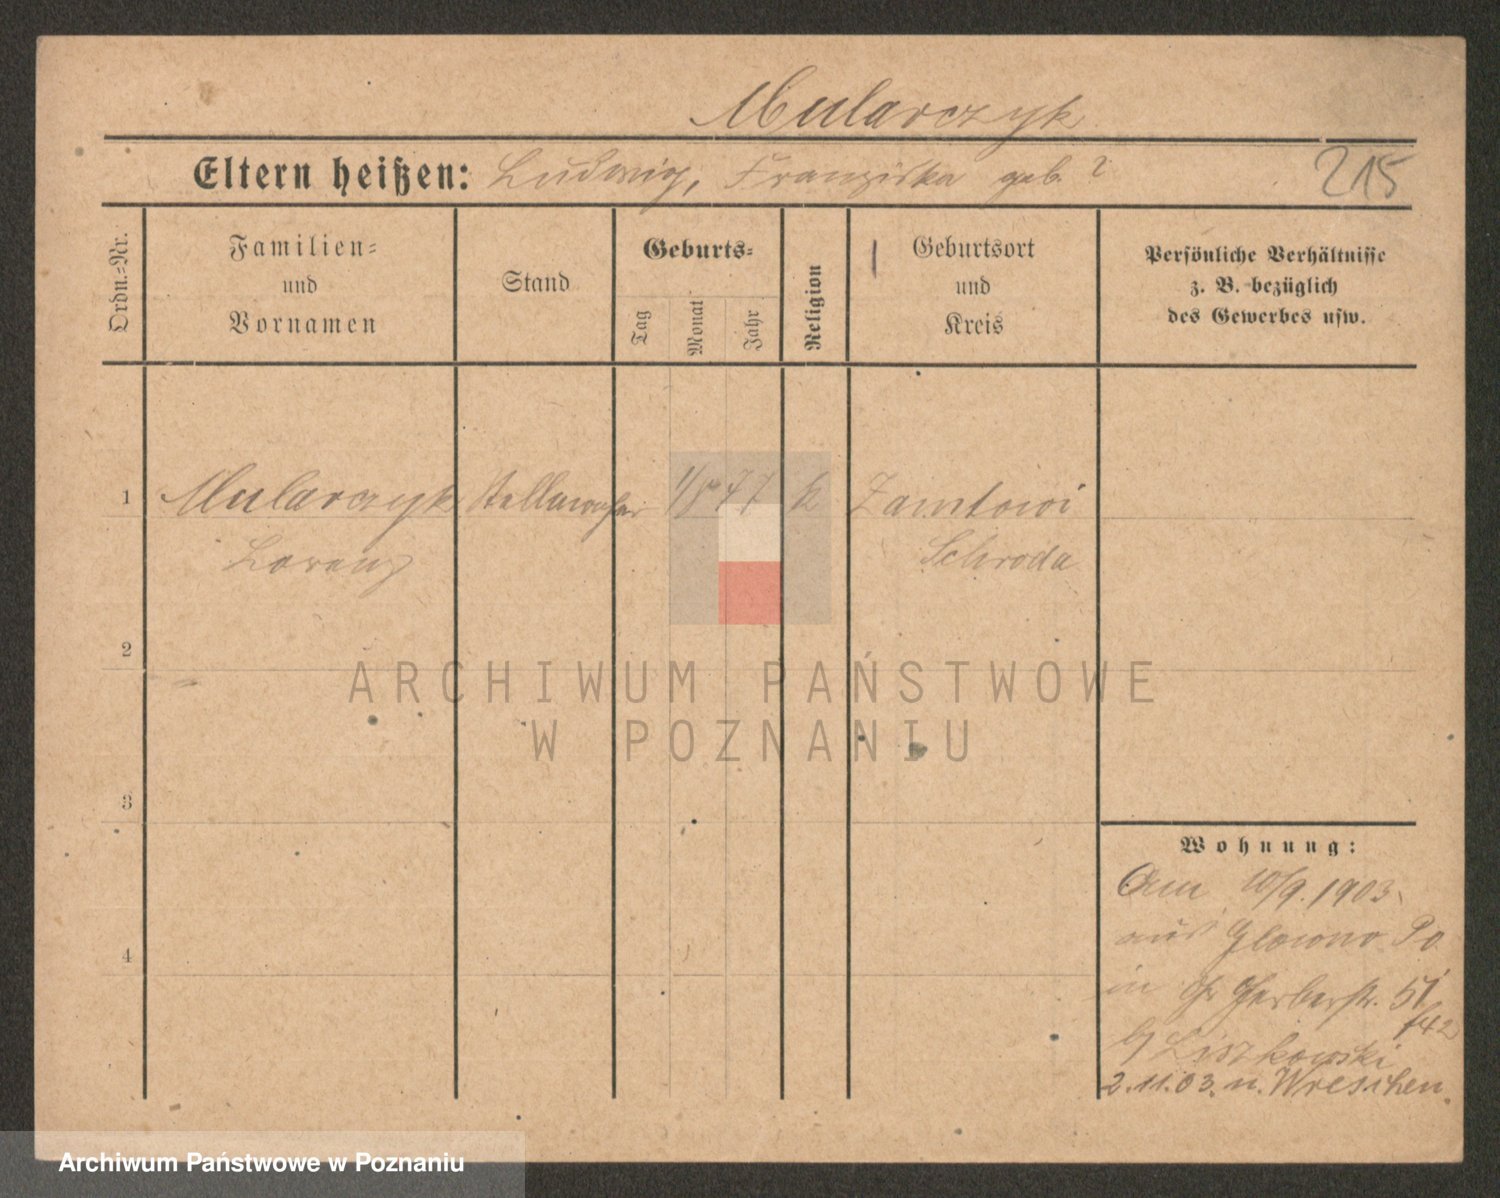 Mularczyk
Eltern heißen: Ludwig, Franziska geb. ?
215
Ordn.=Nr.
Familien=
und
Vornamen
Stand
Geburts=
Tag
Monat
Jahr
Religion
Geburtsort
und
Kreis
Persönliche Verhältnisse
z. B. bezüglich
des Gewerbes usw.
1 Mularczyk Stellmacher 1/8 77 k
Lorenz Schroda
2
ARCHIWUM PAŃSTWOWE
W POZNANIU
3
Wohnung:
Am 10/9. 1903
4
aus Glowno Po
in Gr Gerberstr. 51
/42
b/ Liszkowski
2.11.03. n. Wreschen.
Archiwum Państwowe w Poznaniu